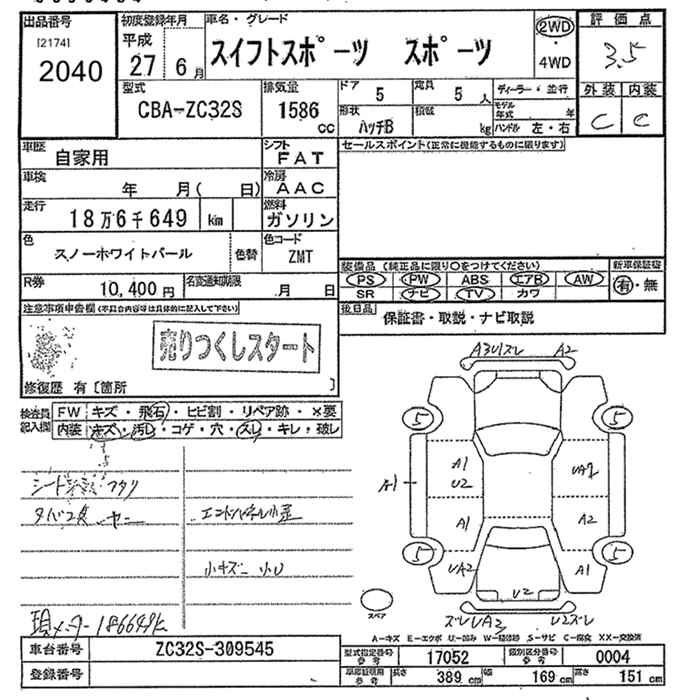 出品番号 初度登録年月 車名・グレード 2WD・4WD 評価点
[2174] 2040 平成 27 6月 スイフトスポーツ スポーツ 3.5
型式 排気量 ドア 5 定員 5人 ディーラー・並行 外装 内装
CBA-ZC32S 1586cc 形状 ハッチB 積載 kg モデル年式 年 ハンドル 左・右 C C
車歴 自家用 シフト FAT セールスポイント(正常に機能するものに限ります)
車検 年 月( 日) 冷房 AAC
走行 18万6千649 km 燃料 ガソリン
色 スノーホワイトパール 色替 色コード ZMT
装備品 (純正品に限り○をつけてください) 新車保証書
R券 10,400円 名変通知期限 月 日 PS PW ABS エアB AW 有・無
SR ナビ TV カワ
注意事項申告欄(不具合内容等は具体的に記入して下さい) 後日品 保証書・取説・ナビ取説
売りつくしスタート
修復歴 有〔箇所 〕
検査員記入欄 FW キズ・飛石・ヒビ割・リペア跡・×要
内装 キズ・汚レ・コゲ・穴・スレ・キレ・破レ
A3UスレA2
5 5
A1 A1 U2 UA2
A1 A2
5 5
UA2 U2 A1
スペア スレUA3 U2スレ
シート フタツ
タバコ臭 ヤニ エンドパネル小歪
小キズ 小U
現メーター186649k
A-キズ E-エクボ U-凹み W-補修跡 S-サビ C-腐食 XX-交換済
車台番号 ZC32S-309545 型式指定番号参考 17052 類別区分番号参考 0004
登録番号 車庫証明用参考 長さ 389cm 幅 169cm 高さ 151cm